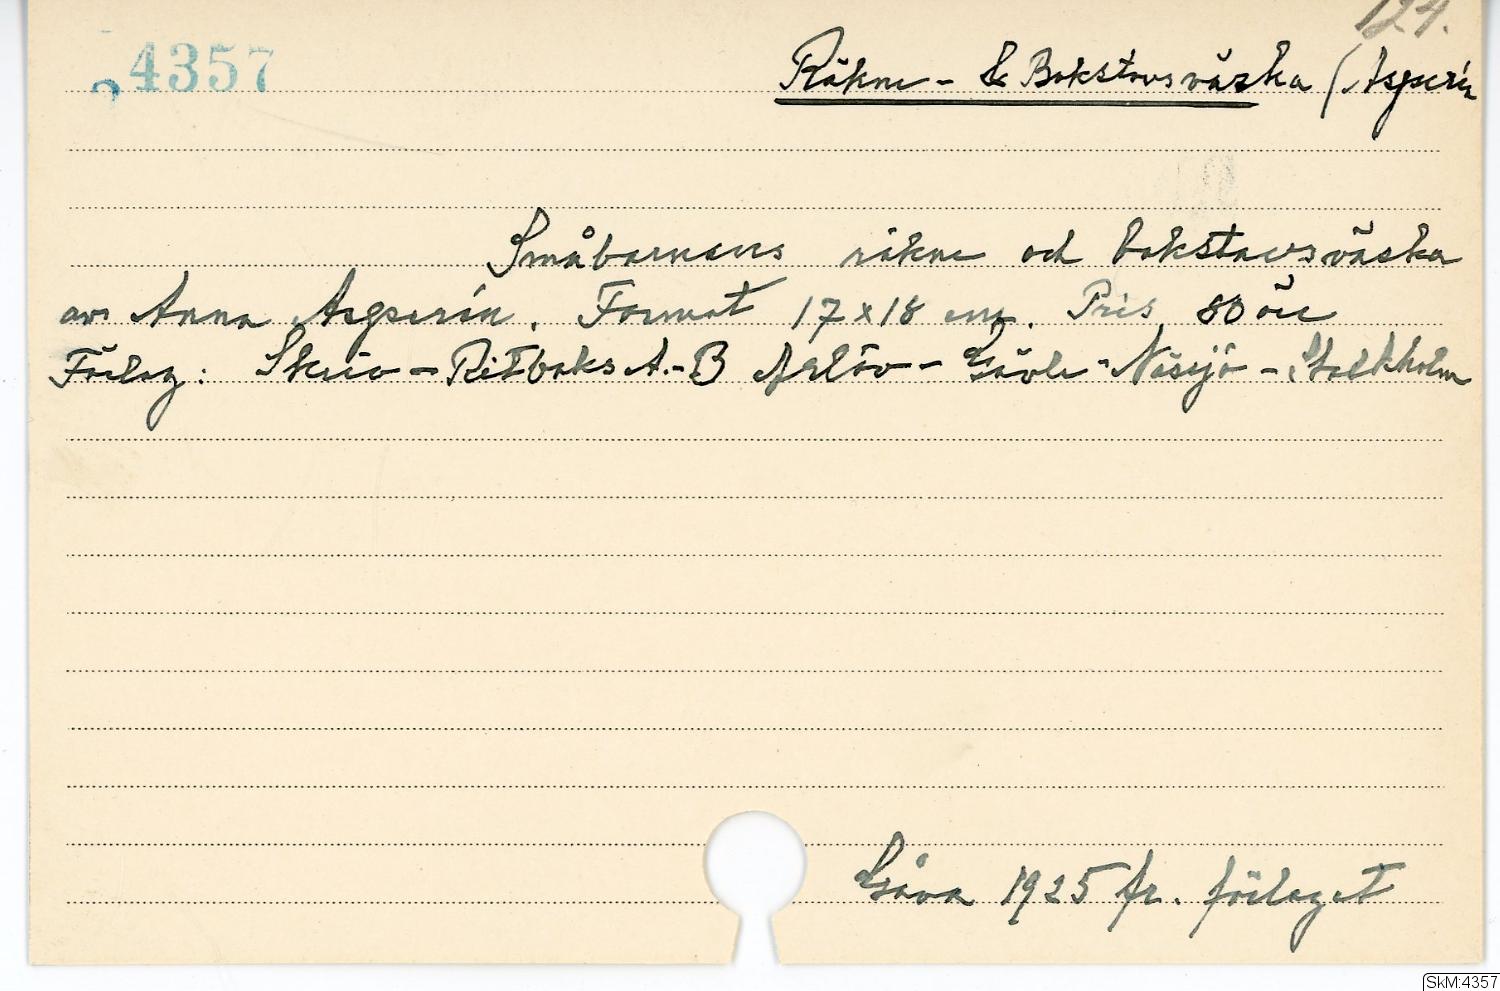 124.
4357
Räkne- & Bokstavsväska (Asperín
Småbarnens räkne och bokstavsväska
av Anna Asperín. Format 17x18 cm. Pris 80 öre
Förlag: Skriv-Ritboks A.-B Arlöv-Gävle-Nässjö-Stockholm
Gåva 1925 fr. förlaget
SkM:4357